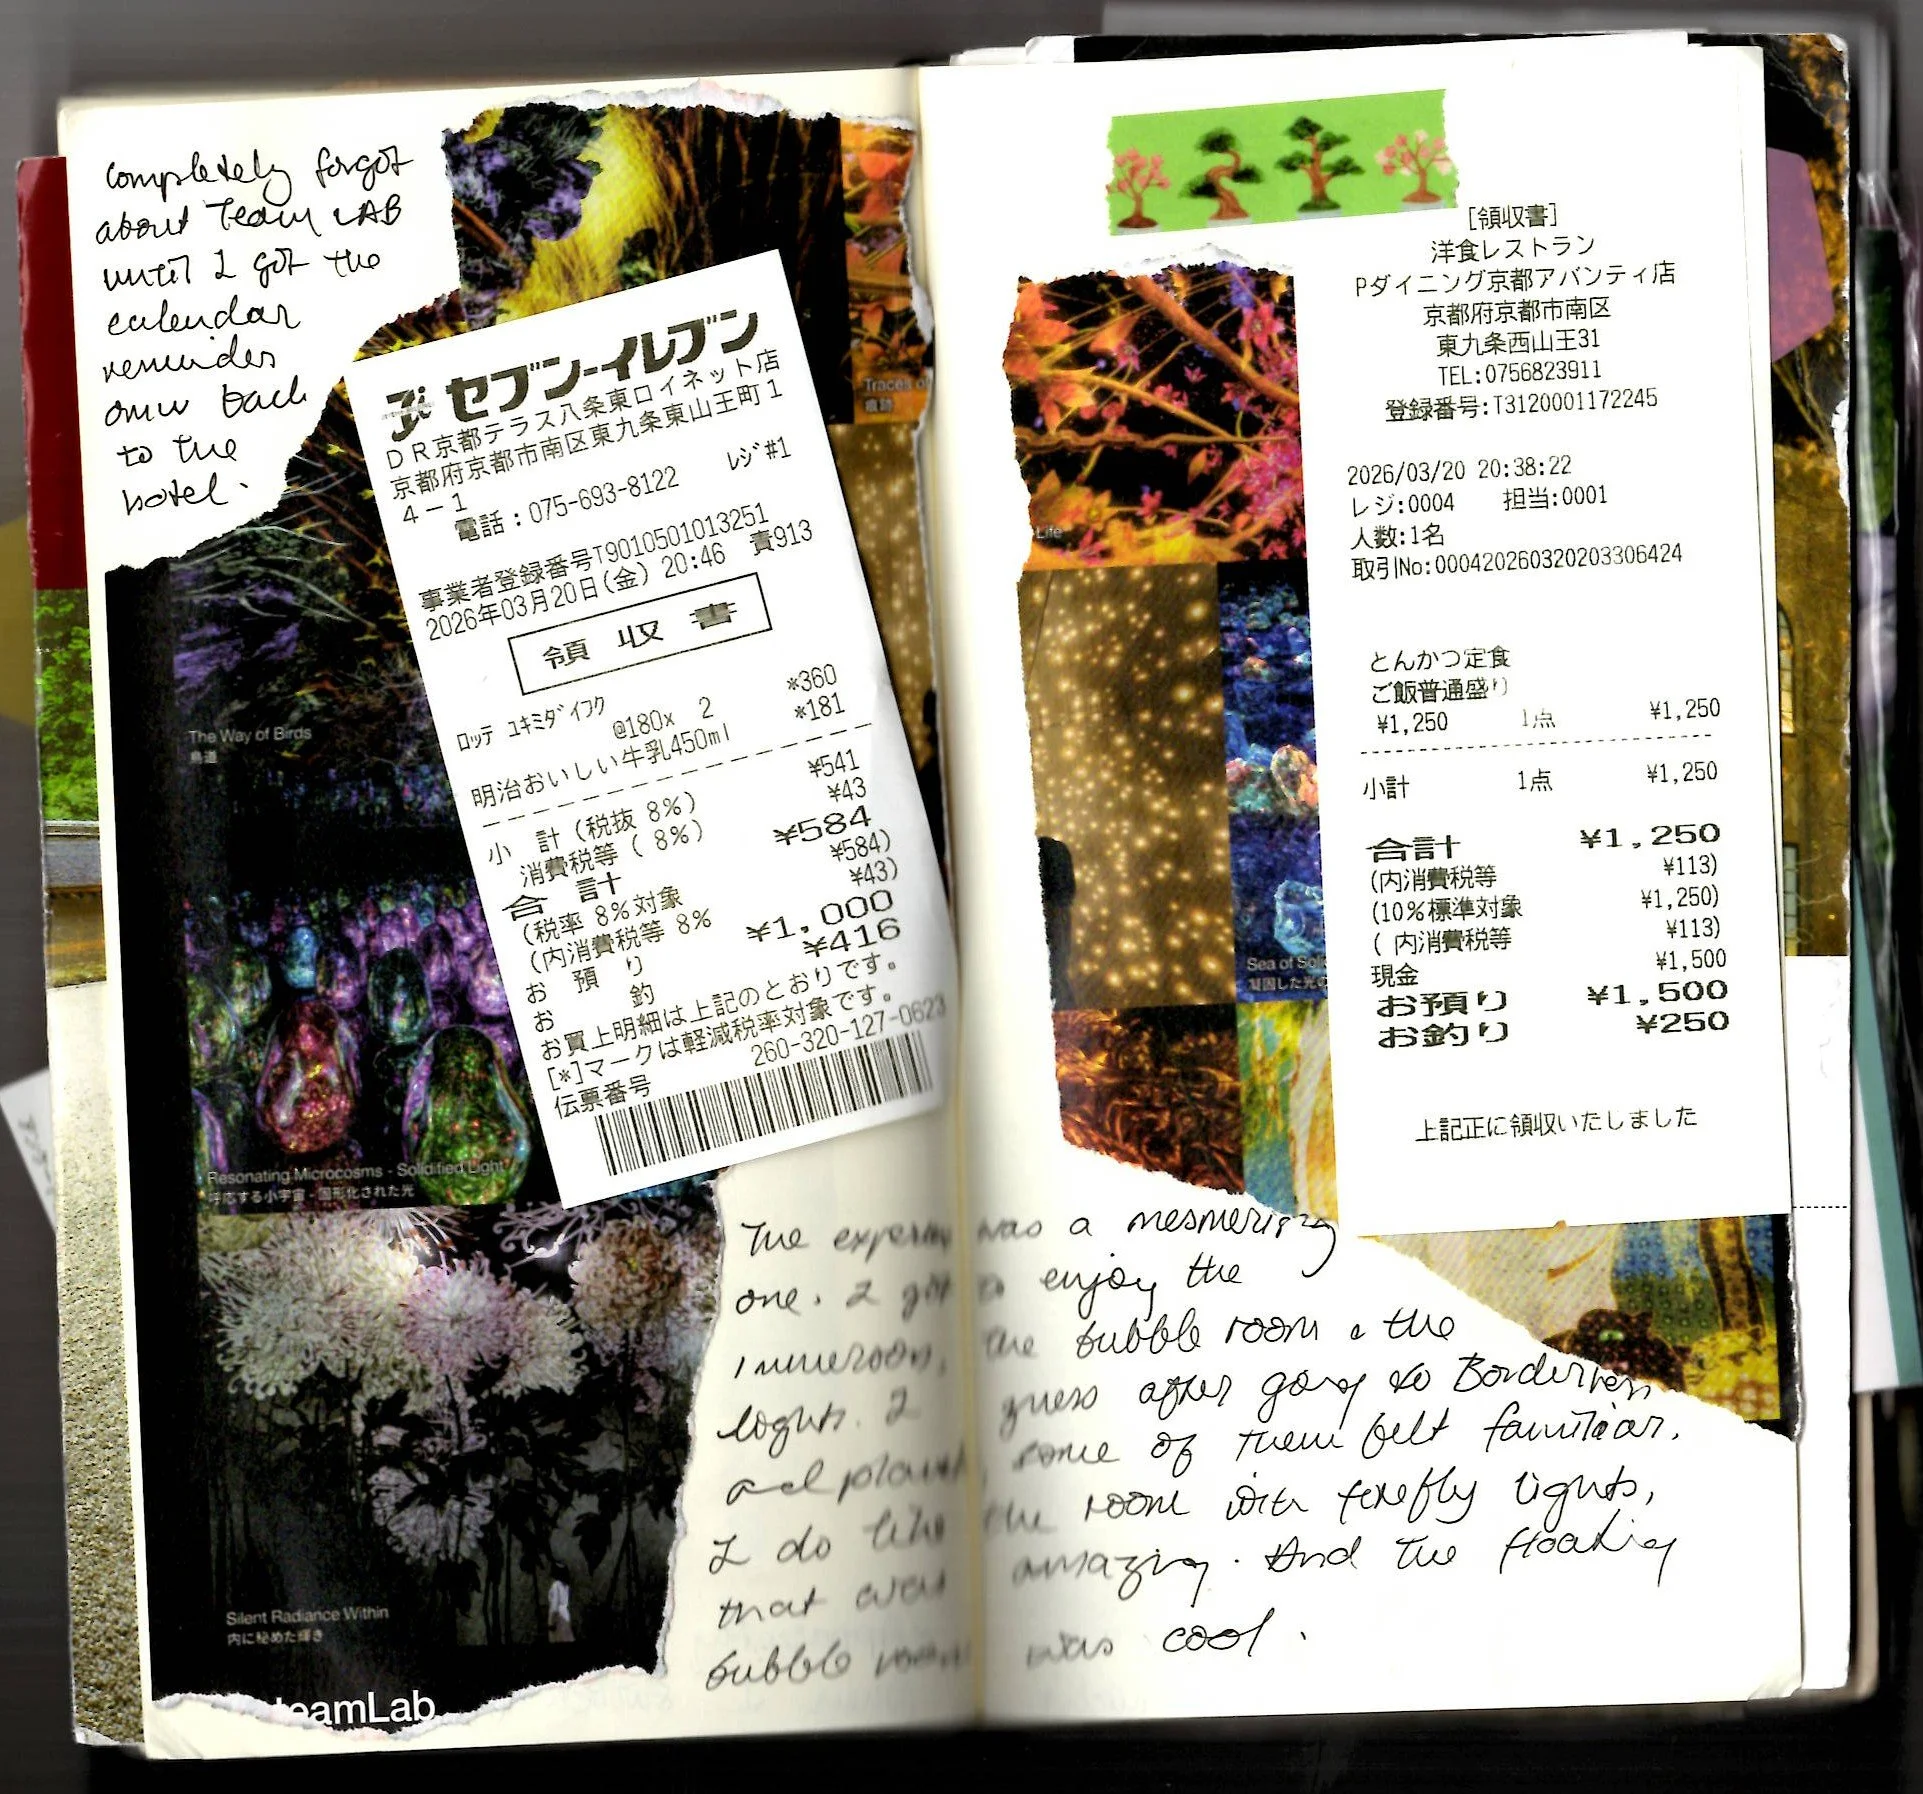 completely forgot
about Team LAB
until I got the
calendar
reminder
omw back
to the
hotel.
Traces of
痕跡
The Way of Birds
鳥道
Resonating Microcosms - Solidified Light
呼応する小宇宙 - 固形化された光
Silent Radiance Within
内に秘めた輝き
teamLab
セブン-イレブン
DR京都テラス八条東ロイネット店
京都府京都市南区東九条東山王町1
4-1
電話:075-693-8122 レジ#1
事業者登録番号T9010501013251
2026年03月20日(金) 20:46 責913
領収書
ロッテ ユキミダイフク *360
@180x 2
明治おいしい牛乳450ml *181
小計(税抜 8%) ¥541
消費税等( 8%) ¥43
合計 ¥584
(税率 8%対象 ¥584)
(内消費税等 8% ¥43)
お預り ¥1,000
お釣 ¥416
お買上明細は上記のとおりです。
[*]マークは軽減税率対象です。
伝票番号 260-320-127-0623
Life
Sea of Soli
凝固した光の
[領収書]
洋食レストラン
Pダイニング京都アバンティ店
京都府京都市南区
東九条西山王31
TEL:0756823911
登録番号:T3120001172245
2026/03/20 20:38:22
レジ:0004 担当:0001
人数:1名
取引No:000420260320203306424
とんかつ定食
ご飯普通盛り
¥1,250 1点 ¥1,250
小計 1点 ¥1,250
合計 ¥1,250
(内消費税等 ¥113)
(10%標準対象 ¥1,250)
( 内消費税等 ¥113)
現金 ¥1,500
お預り ¥1,500
お釣り ¥250
上記正に領収いたしました
The was a mesmerizing
one. I got to enjoy the
the bubble room & the
lights. I guess after going to Borderless
some of them felt familiar.
I do like the room with firefly lights,
that was amazing. And the floating
bubble room was cool.